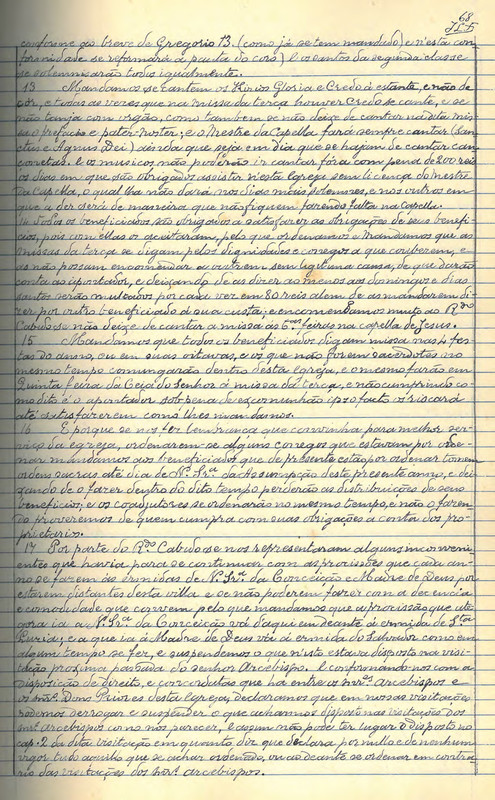 68
conforme ao breve de Gregorio 13. (como já se tem mandado) e n'esta con
formidade se reformará a pauta do coro) e os santos da segunda classe
se solemnisarão todos igualmente.
13 Mandamos se cantem os Kirios Gloria e Credo á estante, e não de
cór, e todas as vezes que na missa da terça houver Credo se cante, e se
não tanja com orgão, como tambem se não deixe de cantar na dita mis-
sa o prefacio e pater-noster, e o Mestre da Capella fará sempre cantar (San
ctus e Agnus Dei) ainda que seja em dia que se hajam de cantar can
çonetas. E os musicos não poderão ir cantar fóra com pena de 200 reis
os dias em que são obrigados assistir nesta Igreja sem licença do Mestre
da Capella, o qual lha não dará nos dias mais solemnes, e nos outros em
que a der será de maneira que não fiquem fazendo falta na Capella.
14 Todos os beneficiados são obrigados a satisfazer as obrigações de seus benefi-
cios, pois com ellas os aceitaram, pelo que ordenamos e mandamos que as
missas da terça se digam pelos dignidades e conegos a que couberem, e
as não possam encomendar a outrem sem legitima causa, de que darão
conta ao apontador, e deixando de as dizer ao menos aos domingos e dias
santos serão multados por cada vez em 80 reis alem de as mandarem di
zer por outro beneficiado á sua custa, e encomendamos muito ao R.do
Cabido se não deixe de cantar a missa as 5.as feiras na capella de Jesus.
15 Mandamos que todos os beneficiados digam missa nas 4 fes
tas do anno, ou em suas oitavas, e os que não forem sacerdotes no
mesmo tempo comungarão dentro desta Igreja, e o mesmo farão em
Quinta feira da Ceia do Senhor á missa da terça, e não cumprindo co
mo dito é o apontador sob pena de excomunhão ipso facto os riscará
até satisfazerem como lhes mandamos.
16 E porque se nos fez lembrança que convinha para melhor ser-
viço da Igreja, ordenarem-se alguns conegos que estavam por orde
nar mandamos aos beneficiados que de presente estão por ordenar tomem
ordens sacras até dia de N.ª Sr.ª da Assumpção deste presente anno, e dei
xando de o fazer dentro do dito tempo perderão as distribuições de seus
beneficios, e os coadjutores se ordenarão no mesmo tempo, e não o fazen
do proveremos de quem cumpra com suas obrigações a conta dos pro-
prietarios.
17 Por parte do R.do Cabido se nos representaram alguns inconveni
entes que havia para se continuar com as procissões que cada an-
no se fazem ás ermidas de N.ª Sr.ª da Conceição e Madre de Deus por
estarem distantes desta villa e se não poderem fazer com a decencia
e comodidade que convem, pelo que mandamos que a procissão que até
gora ia a N.ª Sr.ª da Conceição vá d'aqui em deante á ermida de S.ta
Luzia, e a que ia á Madre de Deus vá á ermida do Salvador como em
algum tempo se fez, e suspendemos o que nisto estava disposto na visi-
tação proxima passada do senhor Arcebispo. E conformando-nos com a
disposição de direito, e concordatas que ha entre os snr.es arcebispos e
os snr.es Dons Priores desta Igreja, declaramos que em nossas visitações
podemos derrogar e suspender o que acharmos disposto nas visitações dos
snr.es arcebispos como nos parecer, e assim não pode ter lugar o disposto no
cap. 2 da dita visitação em quanto diz que declara por nullo e de nenhum
vigor tudo aquilo que se achar ordenado, ou ao deante se ordenar em contra
rio das visitações dos snr.es arcebispos.